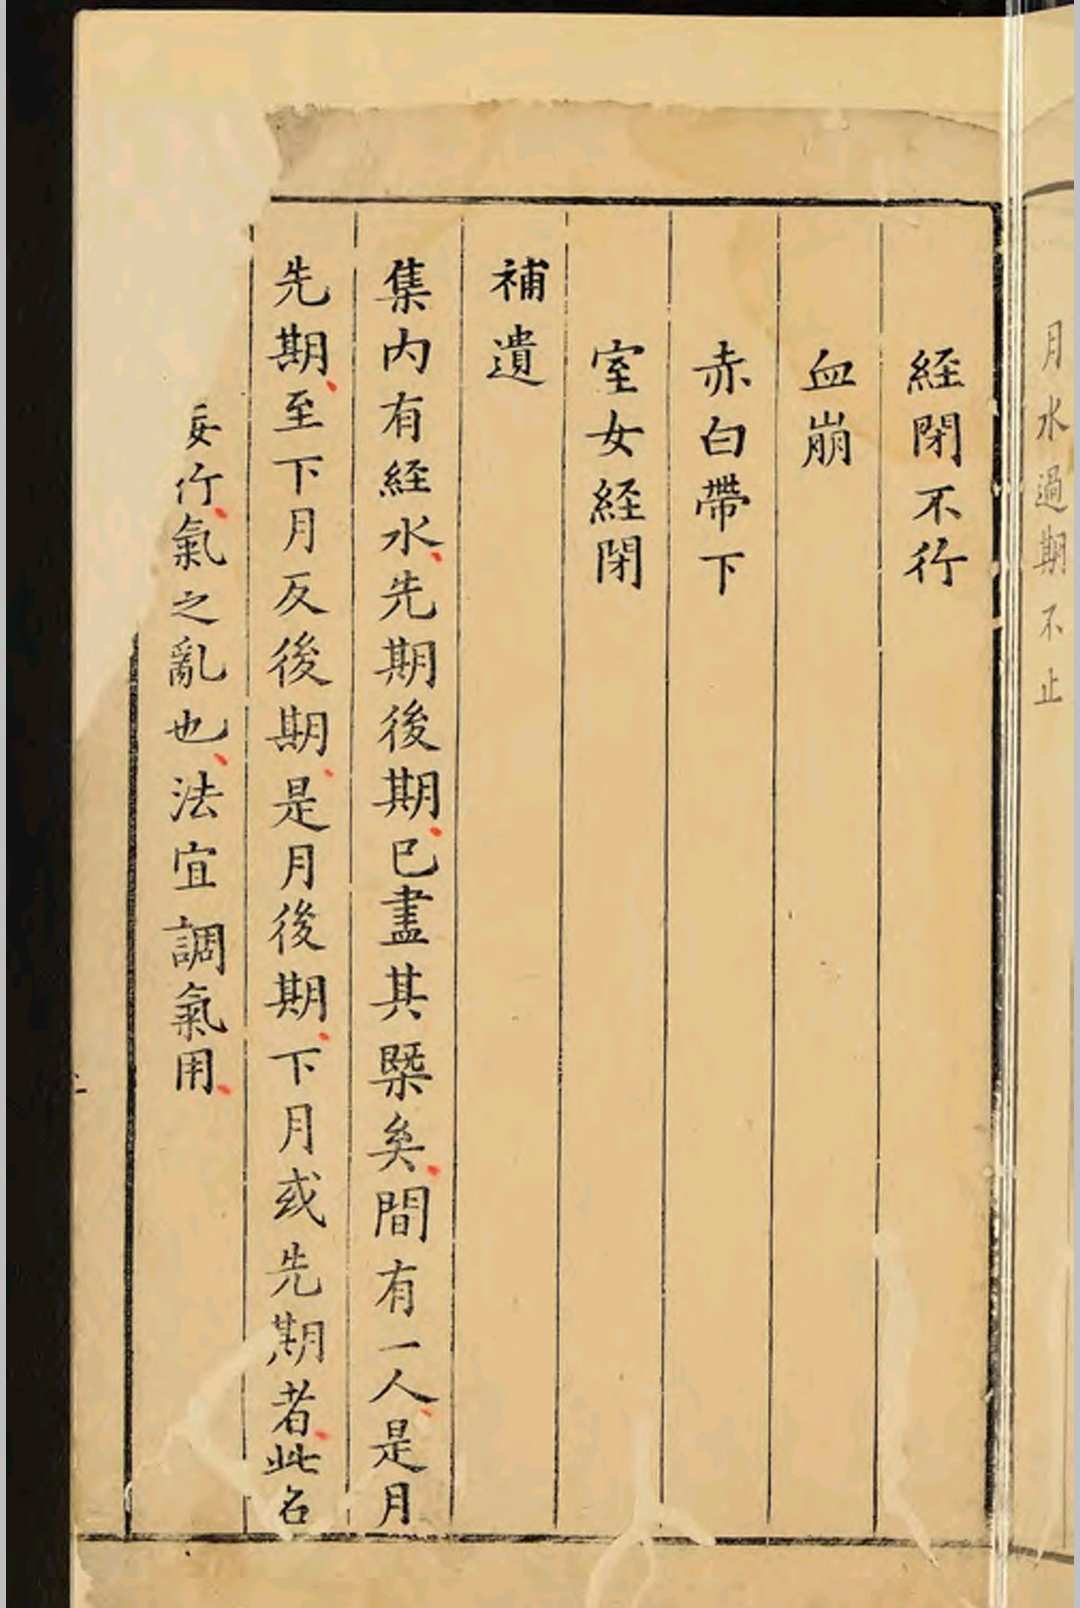 月水過期不止
経閉不行
血崩
赤白帶下
室女経閉
補遺
集内有経水先期後期已盡其槩矣間有一人是月
先期至下月反後期是月後期下月或先期者此名
妄行氣之亂也法宜調氣用